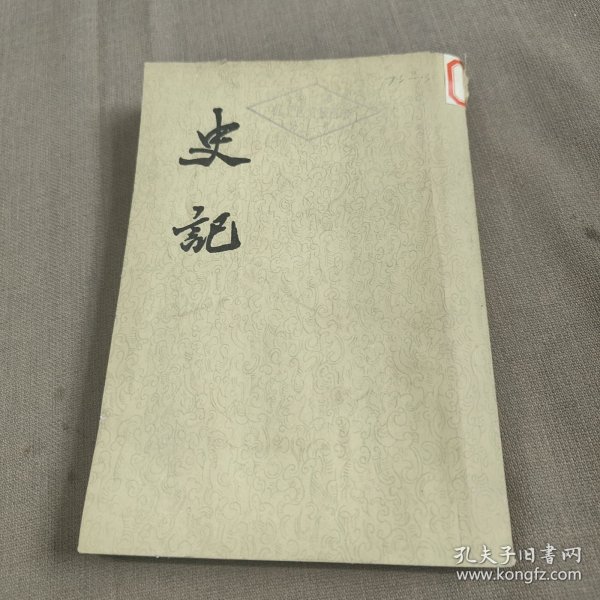 史
記
孔夫子旧書网
www.kongfz.com